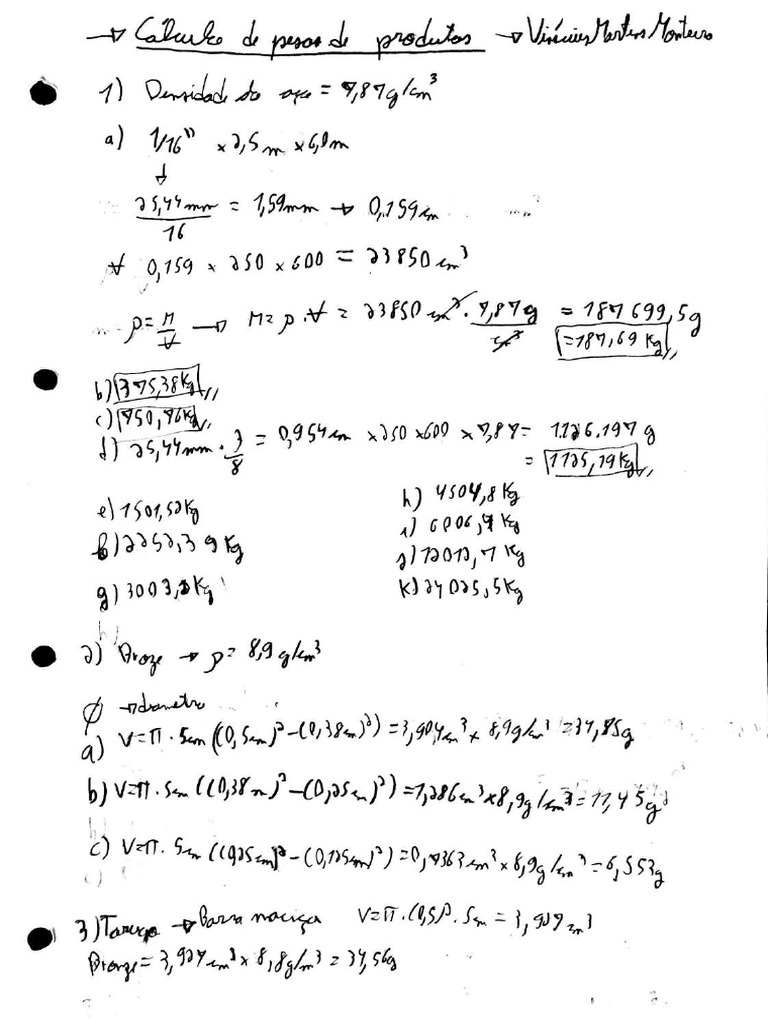 → Cálculo de pesos de produtos → Vinícius Martins Monteiro
1) Densidade do aço = 7,87g/cm³
a) 1/16" x 2,5m x 6,0m
↓
25,44mm/16 = 1,59mm → 0,159cm
V 0,159 x 250 x 600 = 23850cm³
ρ = M/V → M = ρ.V = 23850 cm³ . 7,87g/cm³ = 187 699,5g
= 187,69 Kg
b) 375,38Kg
c) 750,76Kg
d) 25,44mm . 3/8 = 0,954cm x250 x600 x 7,87 = 1.126.197 g
= 1125,19Kg
e) 1501,52Kg
f) 2252,39Kg
g) 3003,2Kg
h) 4504,8Kg
i) 6006,7Kg
j) 12012,7Kg
k) 24025,5Kg
2) Broze → ρ = 8,9g/cm³
Ø → diametro
a) V=π.5cm((0,5cm)²-(0,38cm)²)=3,904cm³x 8,9g/cm³=34,85g
b) V=π.5cm((0,38m)²-(0,25cm)²)=1,286cm³x8,9g/cm³=11,45g
c) V=π.5cm((0,25cm)²-(0,125cm)²)=0,7363cm³x8,9g/cm³=6,553g
3) Tarugo → Barra maciça V=π.(0,5)².5cm = 3,927cm³
Bronze = 3,927cm³ x 8,8g/cm³ = 34,56g